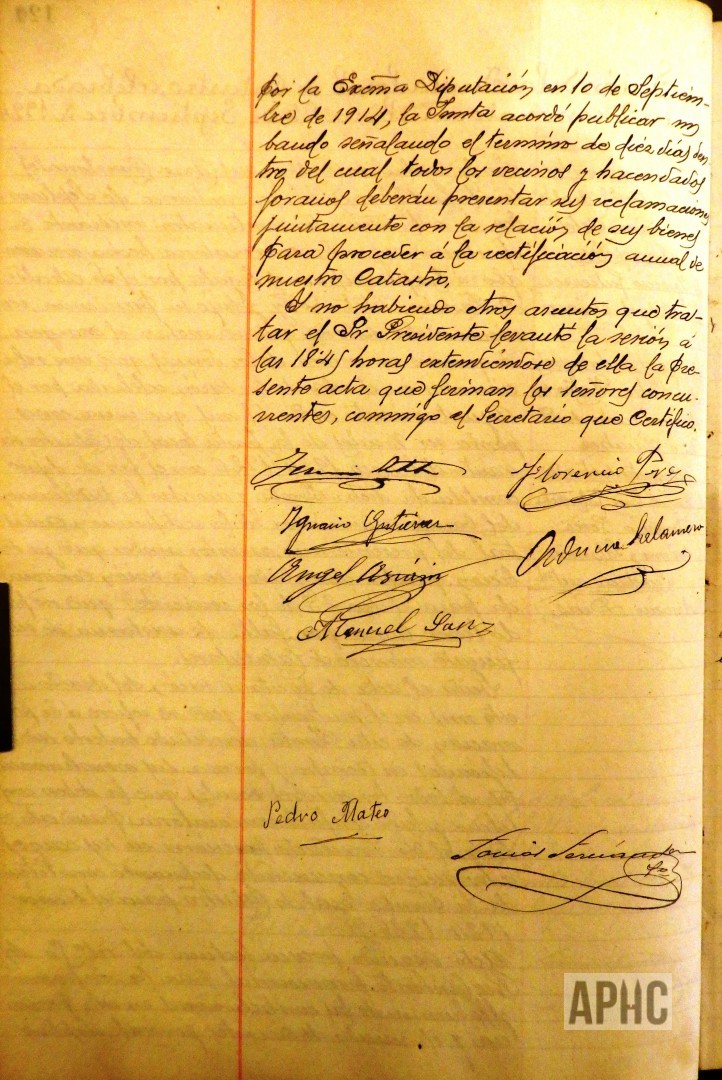 por la Excma Diputación en 10 de Septiem-
bre de 1914, la Junta acordó publicar un
bando señalando el termino de diez días den-
tro del cual todos los vecinos y hacendados
foranos deberán presentar sus reclamaciones
juntamente con la relación de sus bienes
para proceder á la rectificación anual de
nuestro Catastro.
Y no habiendo otros asuntos que tra-
tar el Sr Presidente levantó la sesión á
las 18'45 horas extendiéndose de ella la pre-
sente acta que firman los señores concu-
rrentes, conmigo el Secretario que Certifico.
Florencio
Ignacio Gutiérrez
Angel
Manuel Sanz
Pedro Mateo
Tomás Fernández
APHC